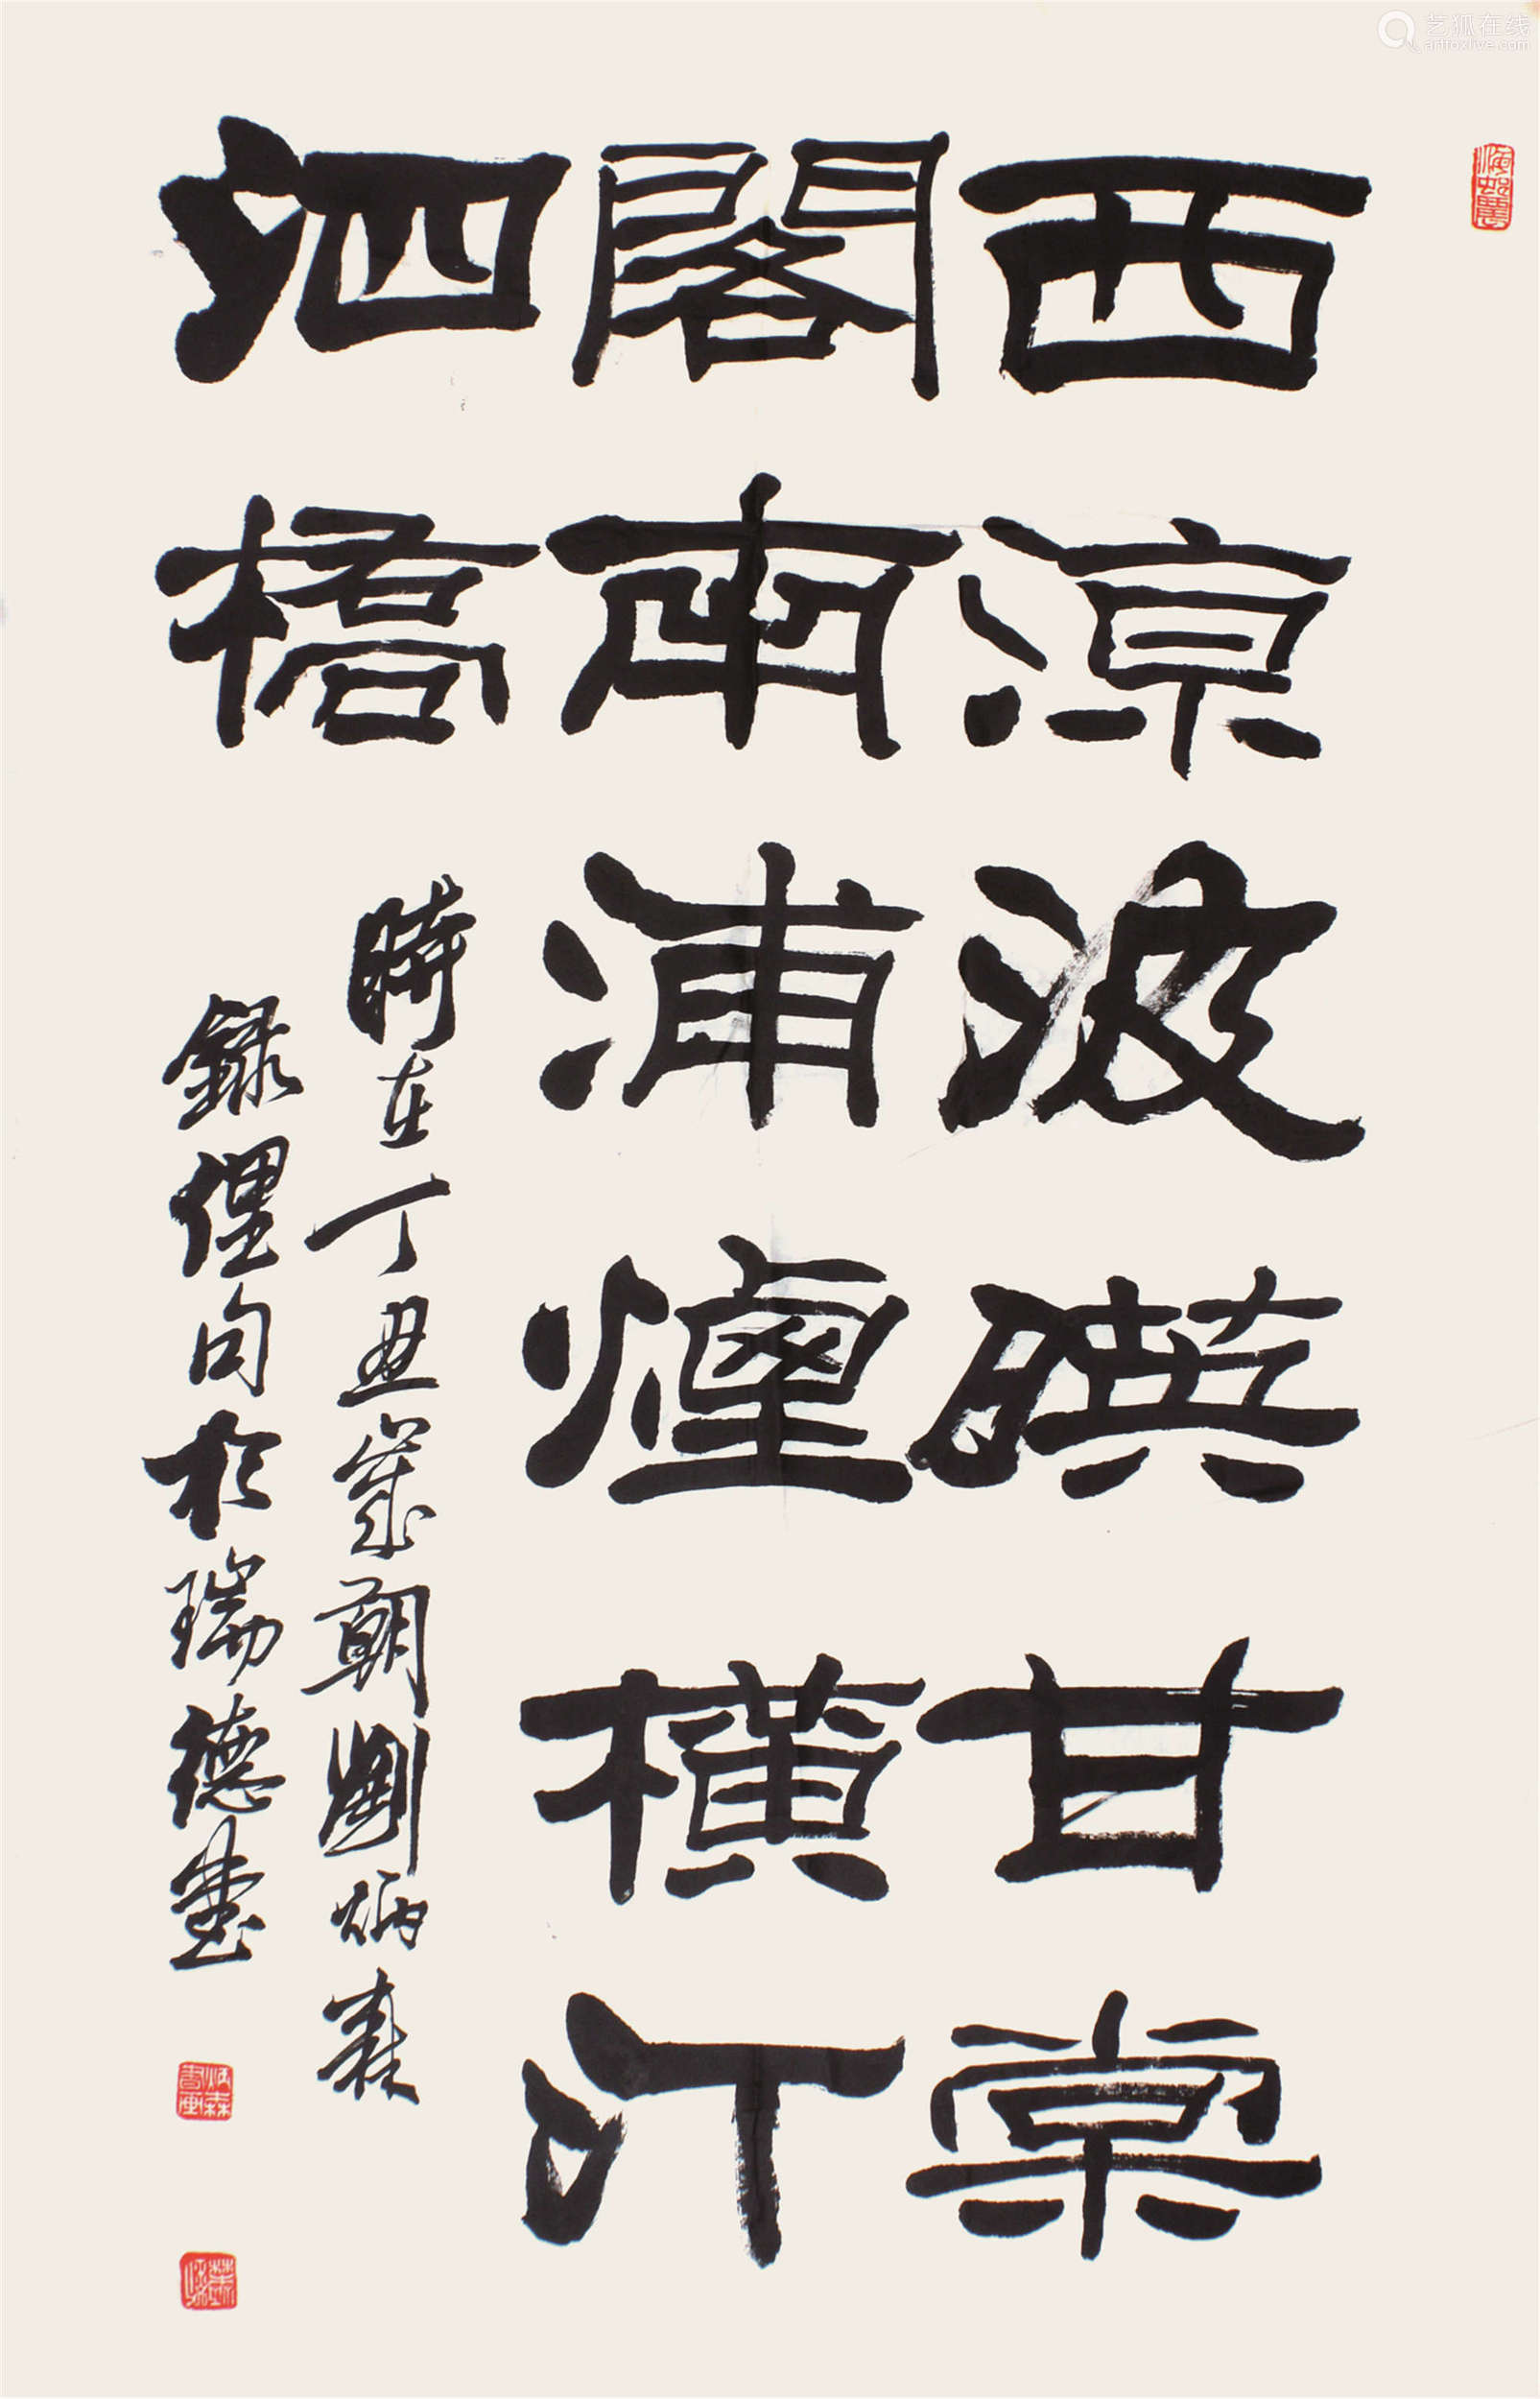 西涼波暎甘棠
閣南浦煙橫汀
泗橋
時在丁丑歲朝劉炳森
錄俚句於瑞德堂
艺狐在线
artfoxlive.com